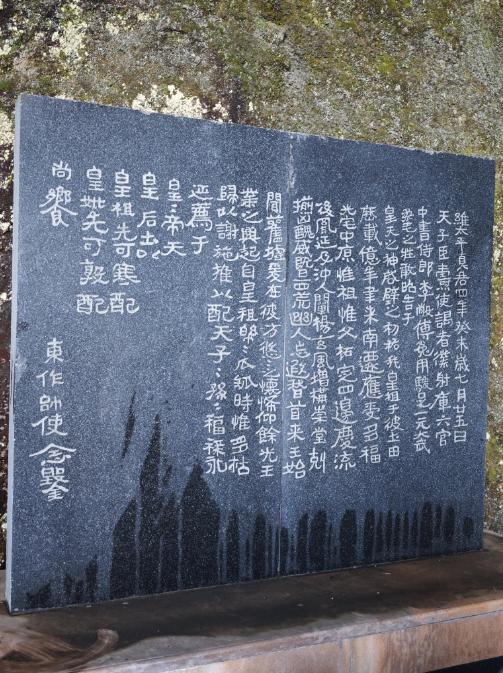 維太平真君四年癸未歲七月廿五日
天子臣燾使謁者僕射庫六官
中書侍郎李敞傅㝹用駿足一元大武
柔毛之牲敢昭告于
皇天之神啟辟之初祐我皇祖于彼土田
歷載億年聿來南遷應受多福
光宅中原惟祖惟父拓定四邊慶流
後胤延及沖人闡揚玄風增構崇堂剋
揃凶醜威暨四荒幽人忘遐稽首来王始
聞舊墟爰在彼方悠〻之懷希仰餘光王
業之興起自皇祖綿〻瓜瓞時惟多祜
歸以謝施推以配天子〻孫〻福祿永
延薦于
皇〻帝天
皇〻后土以
皇祖先可寒配
皇妣先可敦配
尚饗
東作帥使念鑿